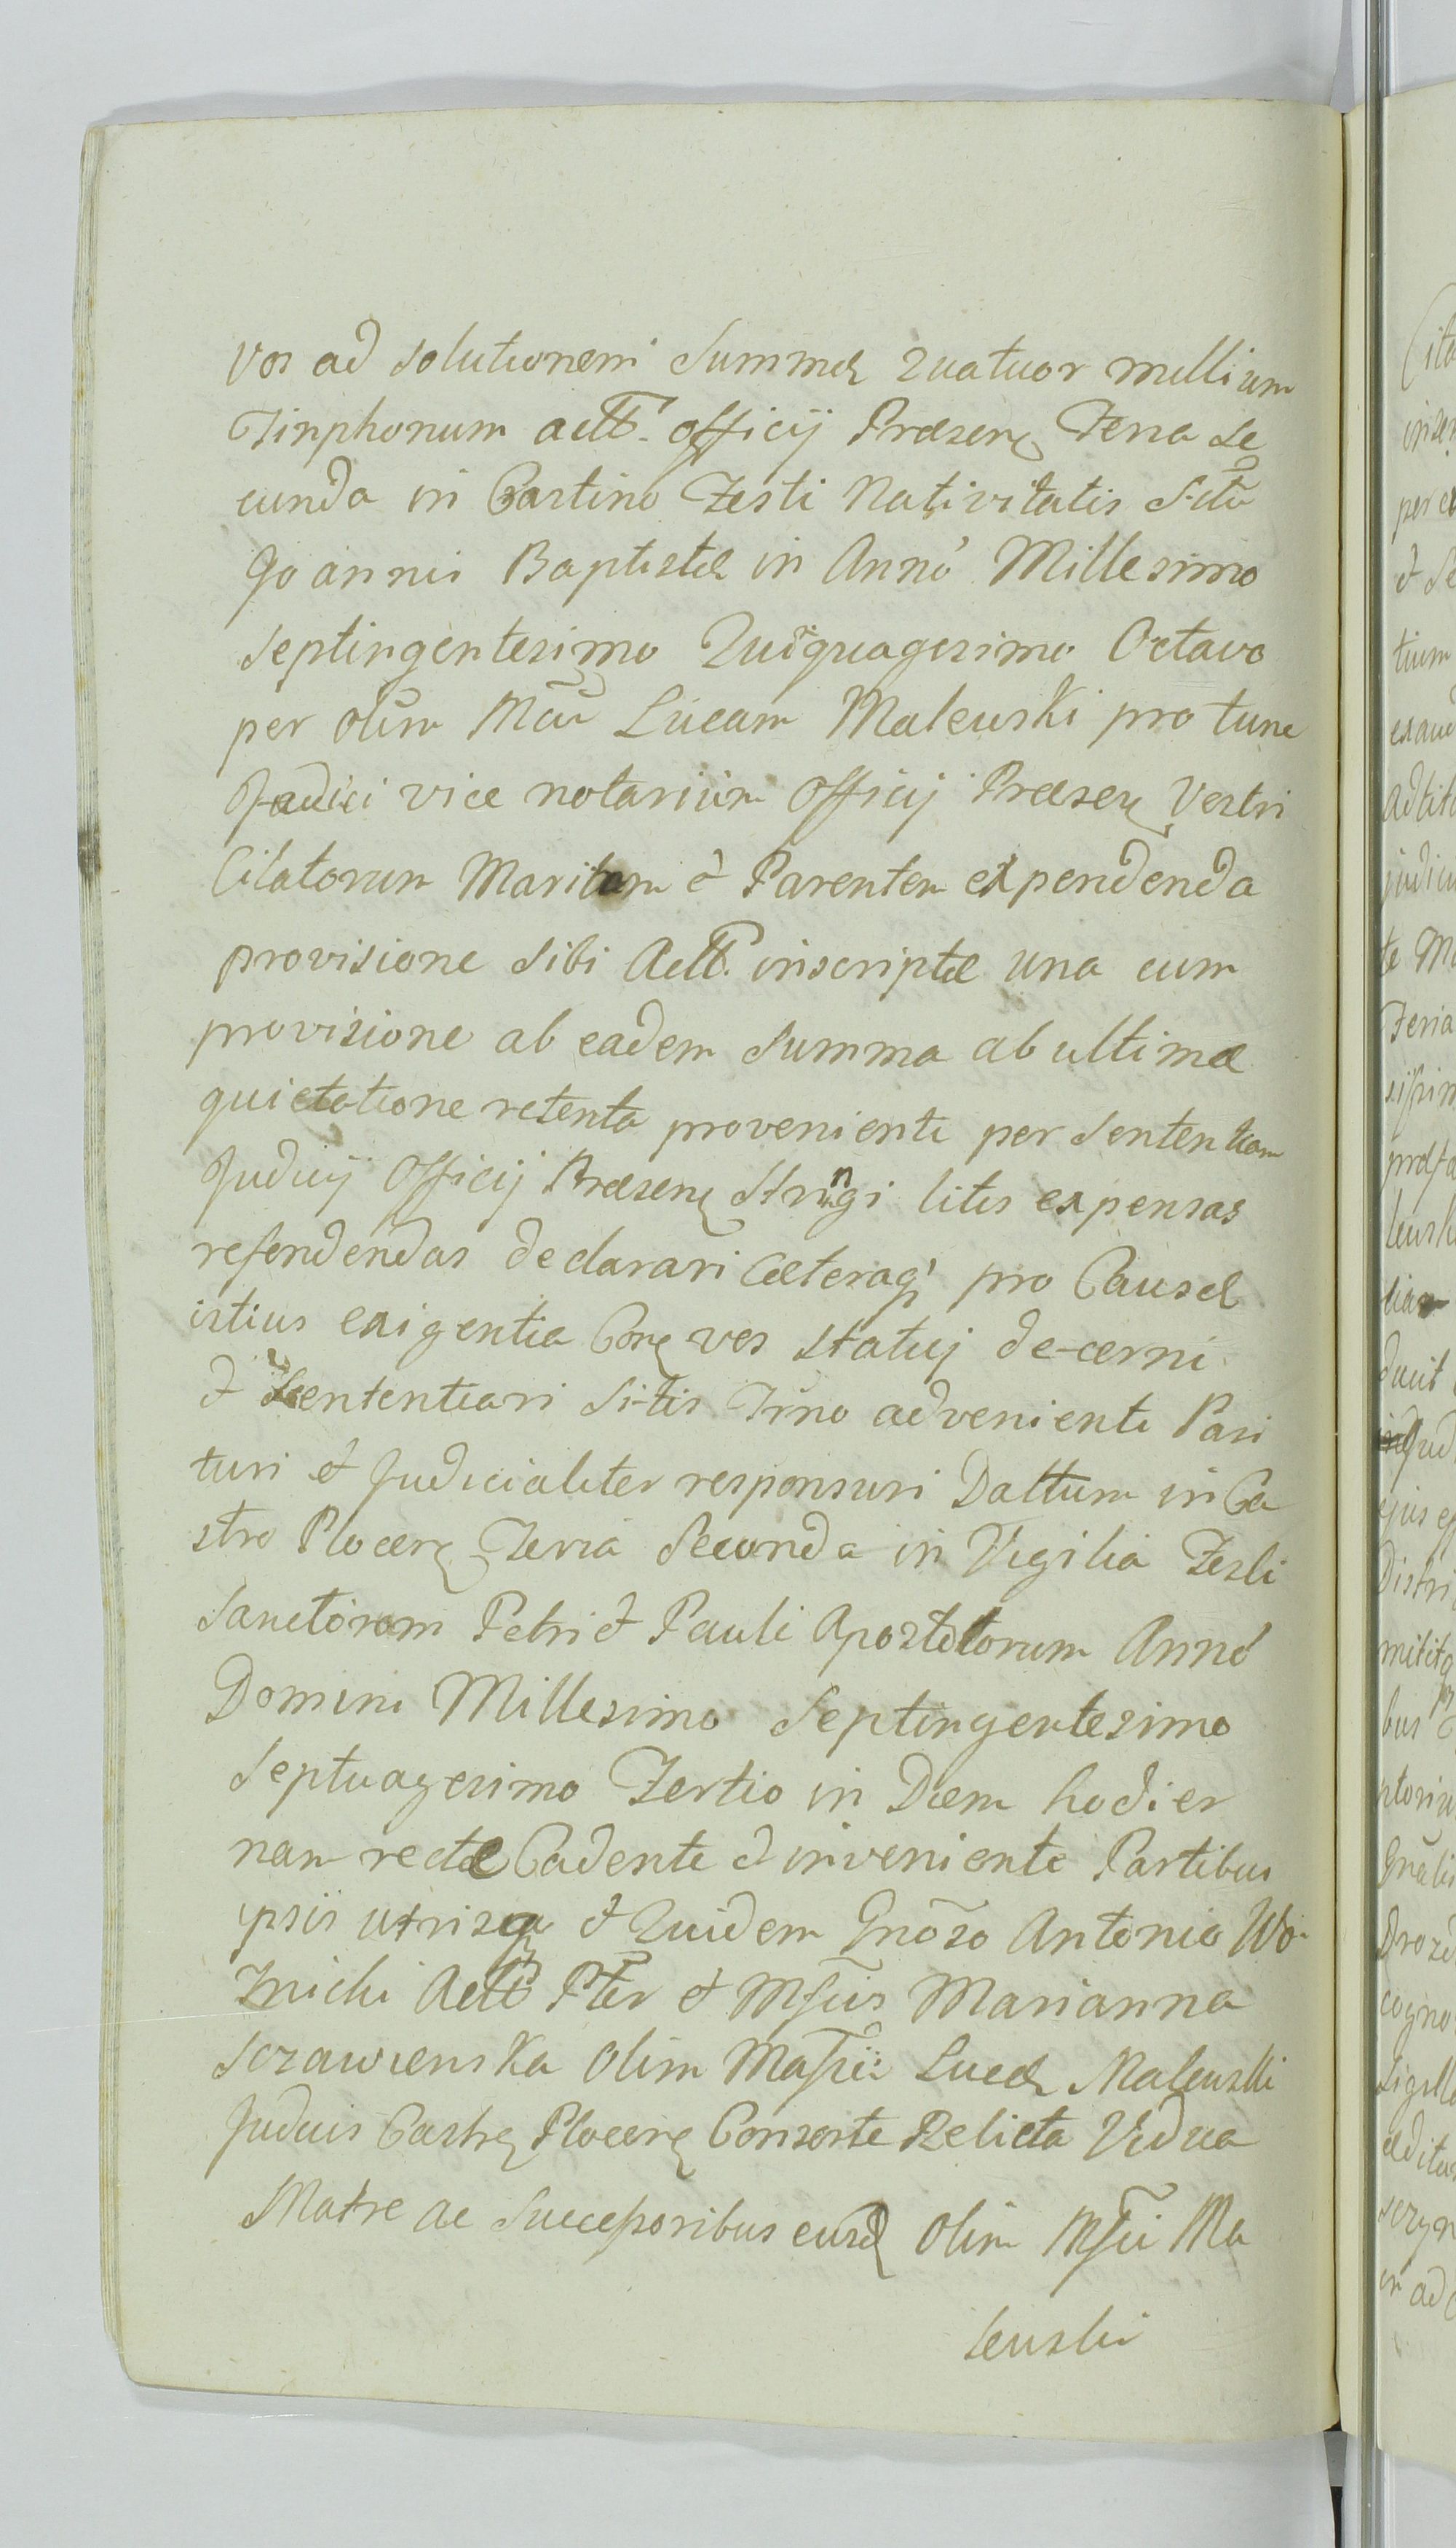 vos ad solutionem Summæ quatuor millium
Tinphonum actis officij Præsen Feria Se
cunda in Crastino Festi Nativitatis Scti
Joannis Baptistæ in Anno Millesimo
Septingentesimo Quinquagesimo Octavo
per olim Mcu Lucam Malewski pro tunc
Judici vice notarium Officij Præsen Vestri
Citatorum Maritum et Parentem expendenda
provisione sibi Act. inscriptæ una cum
provisione ab eadem Summa ab ultimæ
quietatione retenta provenienti per Sententiam
Judicij Officij Præsen Stringi litis expensas
refendendas declarari Cæteraq pro Causæ
istius exigentia Con vos statuj de-cerni
et Sententiari Sitis Trno adveniente Pari
turi et Judicialiter responsuri Dattum in Ca
stro Plocen Feria Secunda in Vigilia Festi
Sanctorum Petri et Pauli Apostolorum Anno
Domini Millesimo Septingentesimo
Septuagesimo Tertio in Diem hodier
nam rectæ Cadente et inveniente Partibus
ipsis utrisq et Quidem Gnoso Antonio Wo
Znicki Act Pter et Msfcis Marianna
Szrawienska Olim Masfici Lucæ Malewski
Judicis Castren Plocen Consorte Relicta Vidua
Matre ac Successoribus eusd Olim Msfci Ma
lewski
(ito
per e
et Se
tium
exau
adtit
judici
te M
Feria
lewsk
ducit
ejus
Distri
mitit
bus
Gnali
cogno
Sigill
in ad